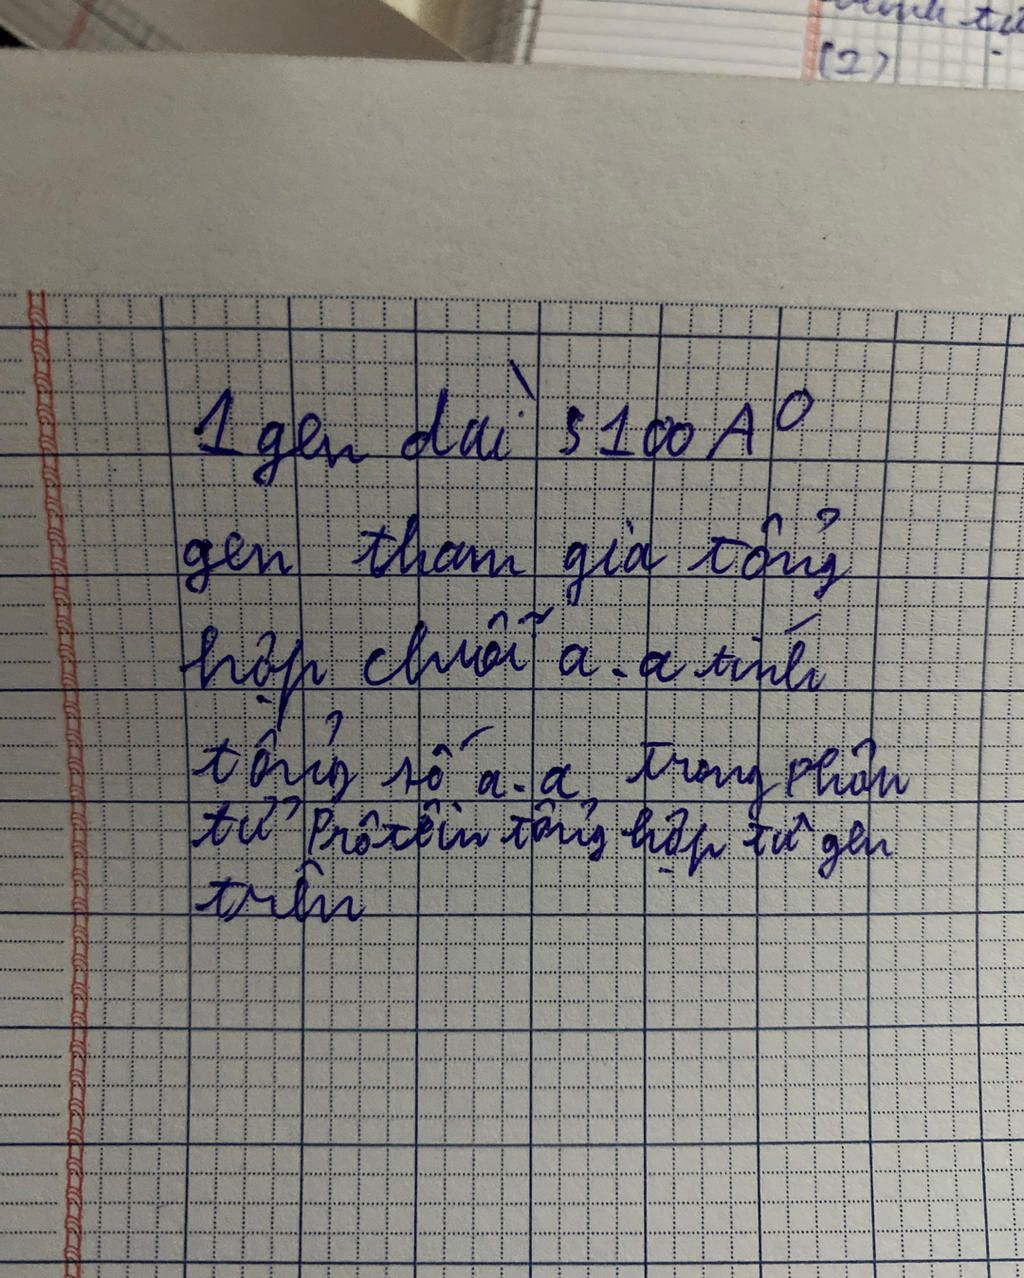 (2)
1 gen dài 5100 A⁰
gen tham gia tổng
hợp chuỗi a.a tính
tổng số a.a trong phân
tử Prôtêin tổng hợp từ gen
trên